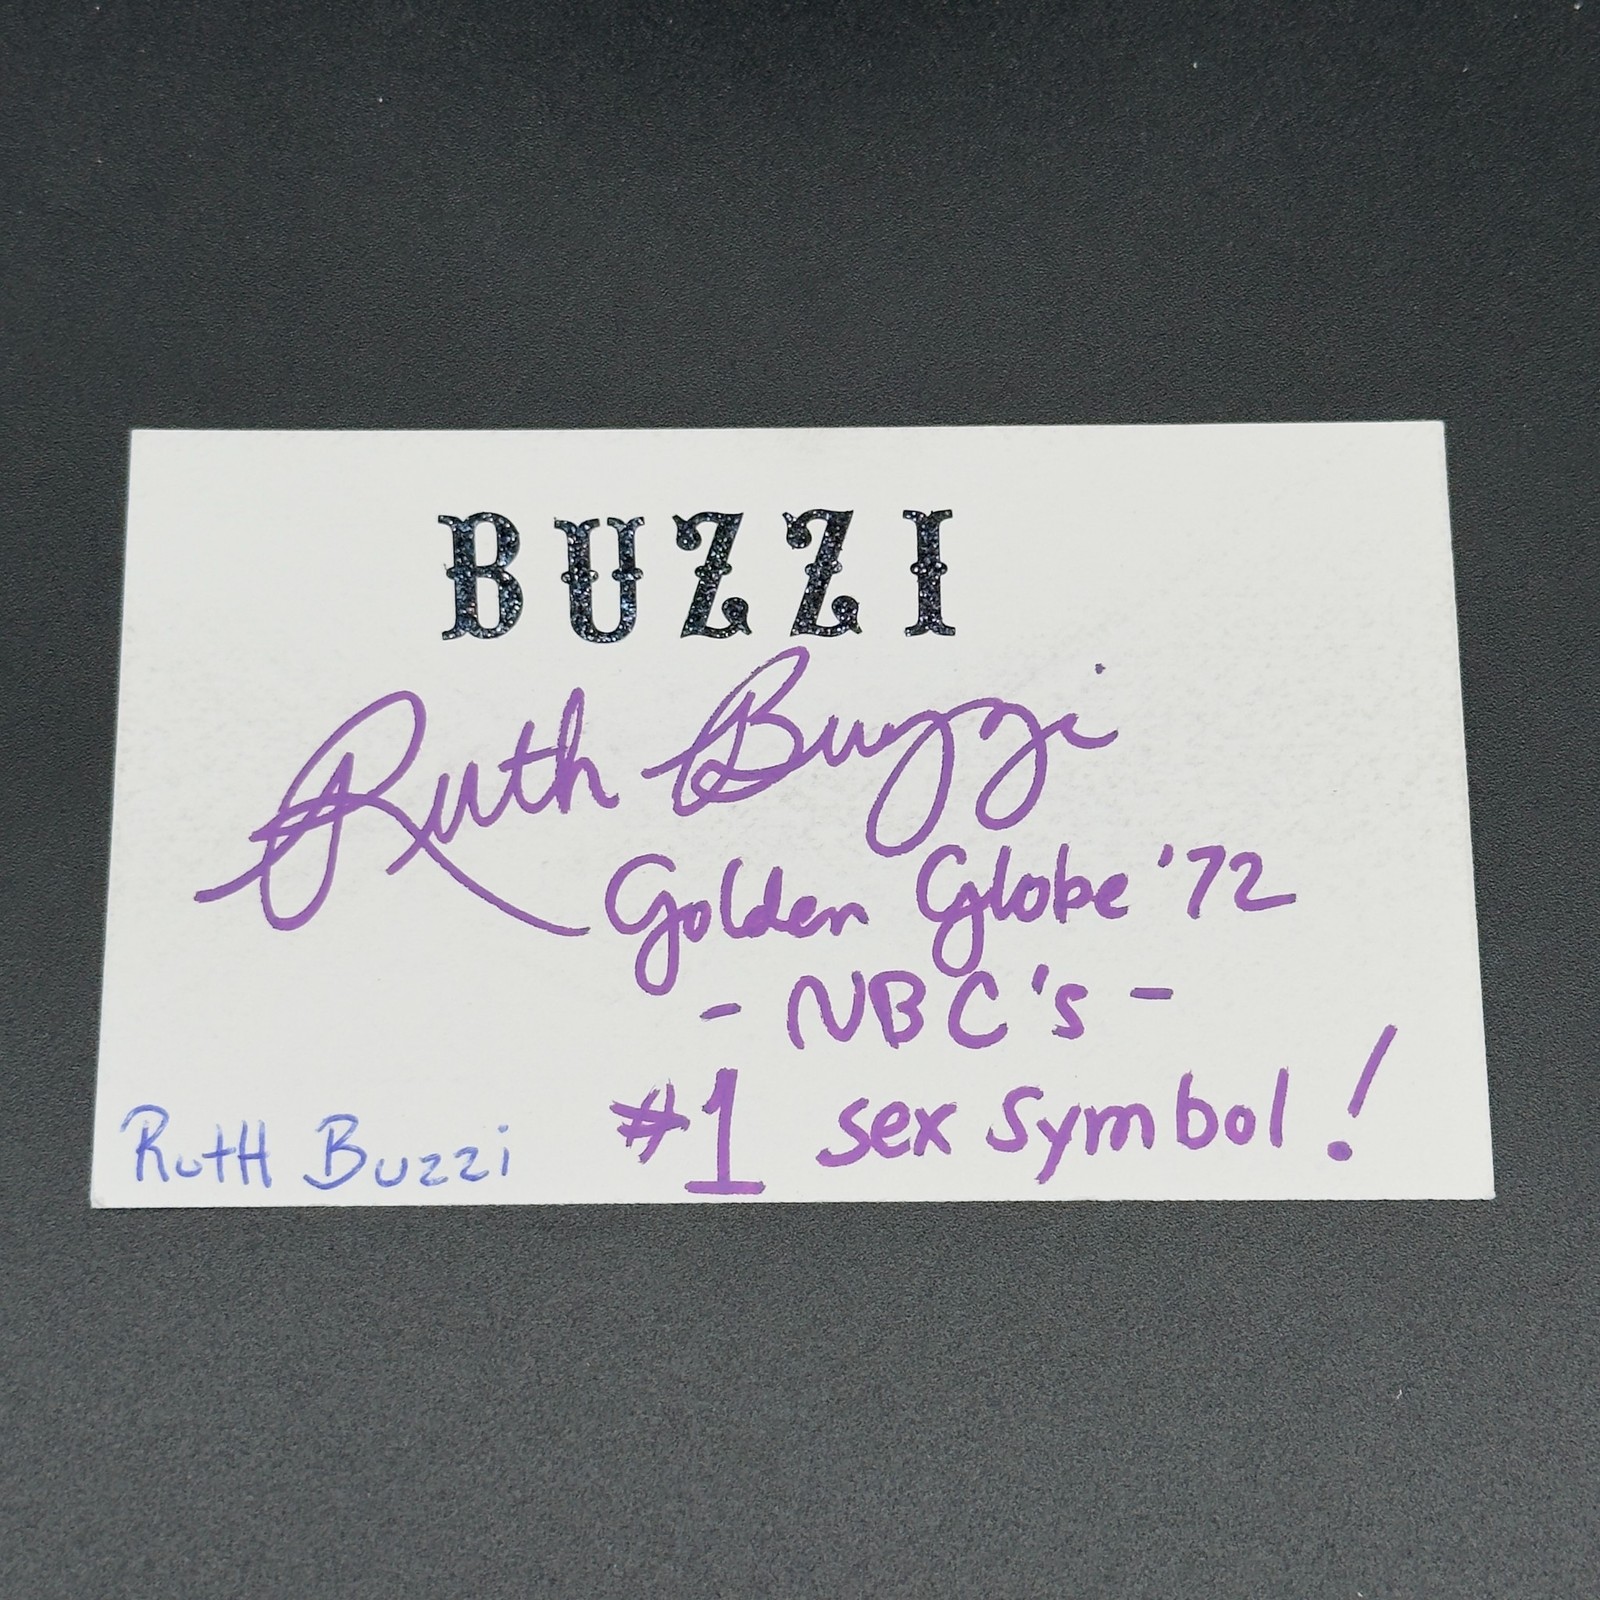 BUZZI
Ruth Buzzi
Golden Globe '72
- NBC's -
#1 sex symbol!
RutH Buzzi